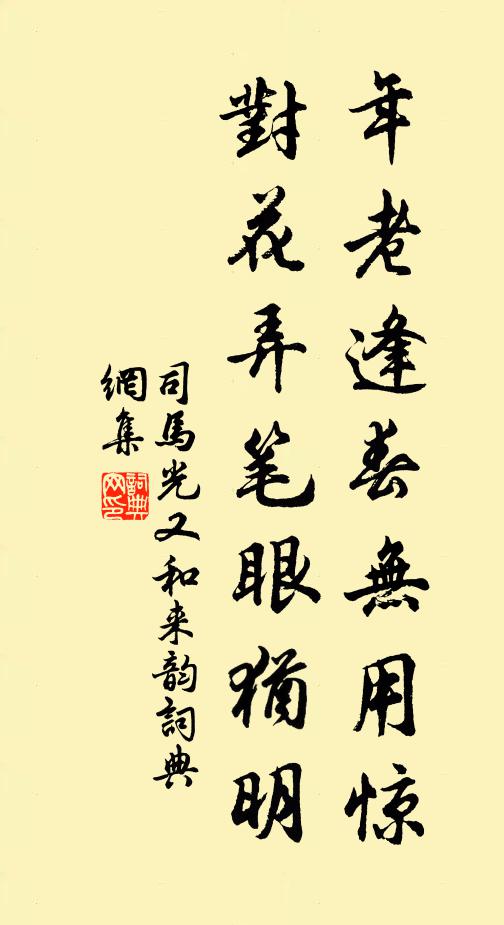 年老逢春無用惊
對花弄笔眼猶明
司馬光又和来韵詞典
網集
詞典網印